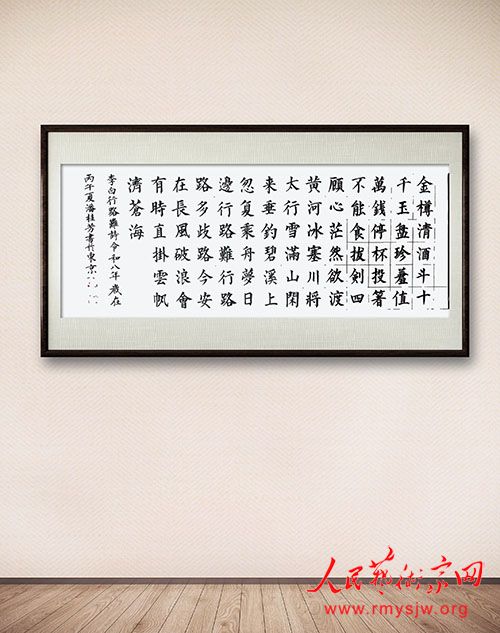 金樽清酒斗十
千玉盘珍羞值
萬錢停杯投箸
不能食拔剣四
顧心茫然欲渡
黄河冰塞川將
太行雪滿山閑
来垂釣碧溪上
忽复乘舟夢日
邊行路難行路
路多歧路今安
在長風破浪會
有時直掛雲帆
濟蒼海
李白行路難詩令和八年歲在
丙午夏潘桂芳書於東京
人民藝術家网
www.rmysjw.org